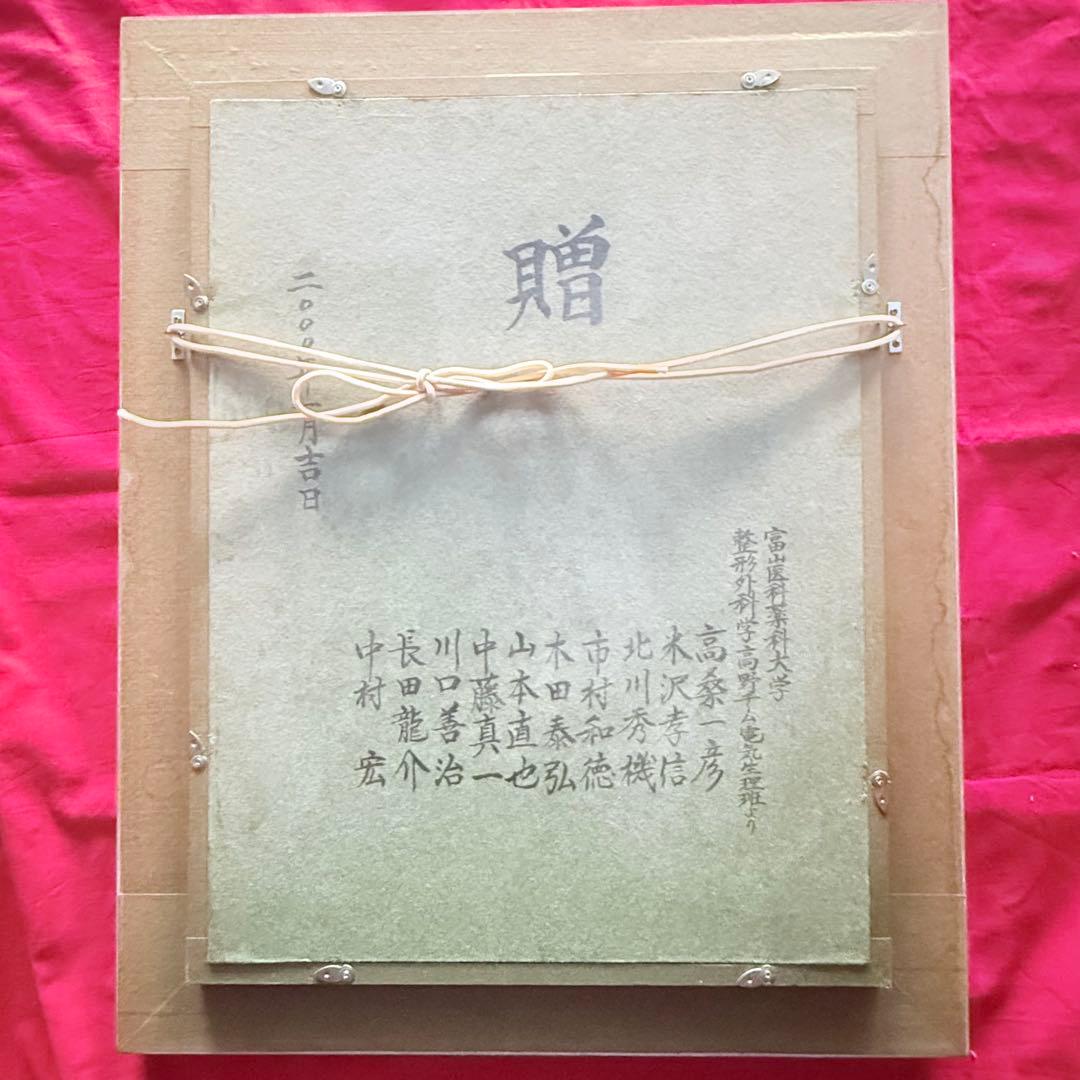 贈
富山医科薬科大学
整形外科学高野チーム電気生理班より
高桑一彦
米沢孝信
北川秀機
市村和徳
木田泰弘
山本直也
中藤真一
川口善治
長田龍介
中村 宏
二〇〇〇年一月吉日